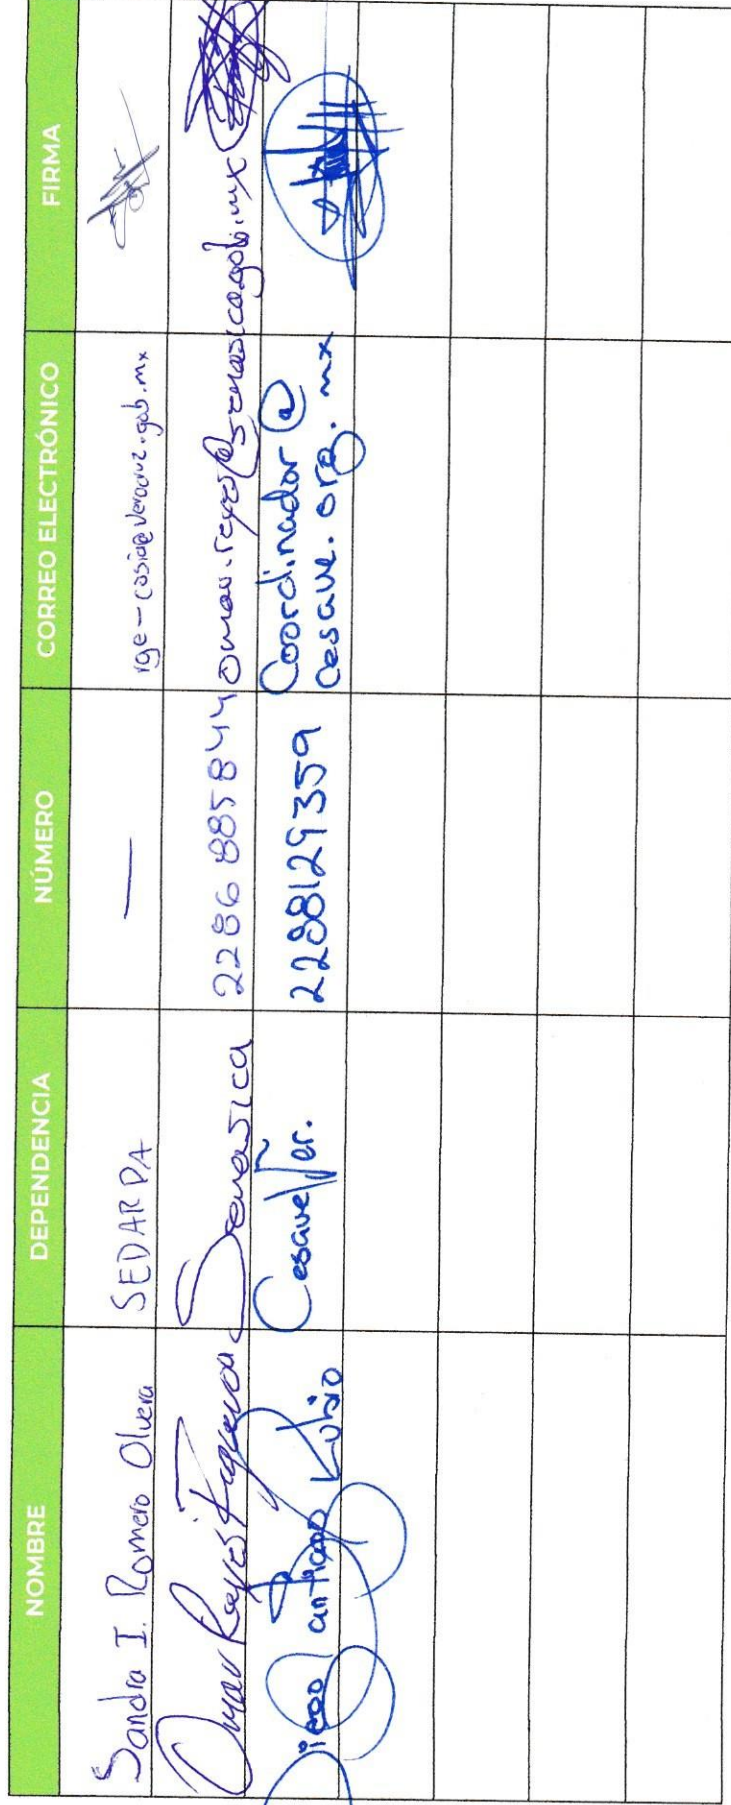 NOMBRE DEPENDENCIA NÚMERO CORREO ELECTRÓNICO FIRMA
Sandra I. Romero Olvera SEDARPA — rge-cosia@veracruz.gob.mx
Omar Reyes Figueroa Senasica 2286 885844 omar.reyes@senasica.gob.mx
Diego Santiago Rubio Cesave/Ver. 2288129359 Coordinador@
cesave.org.mx